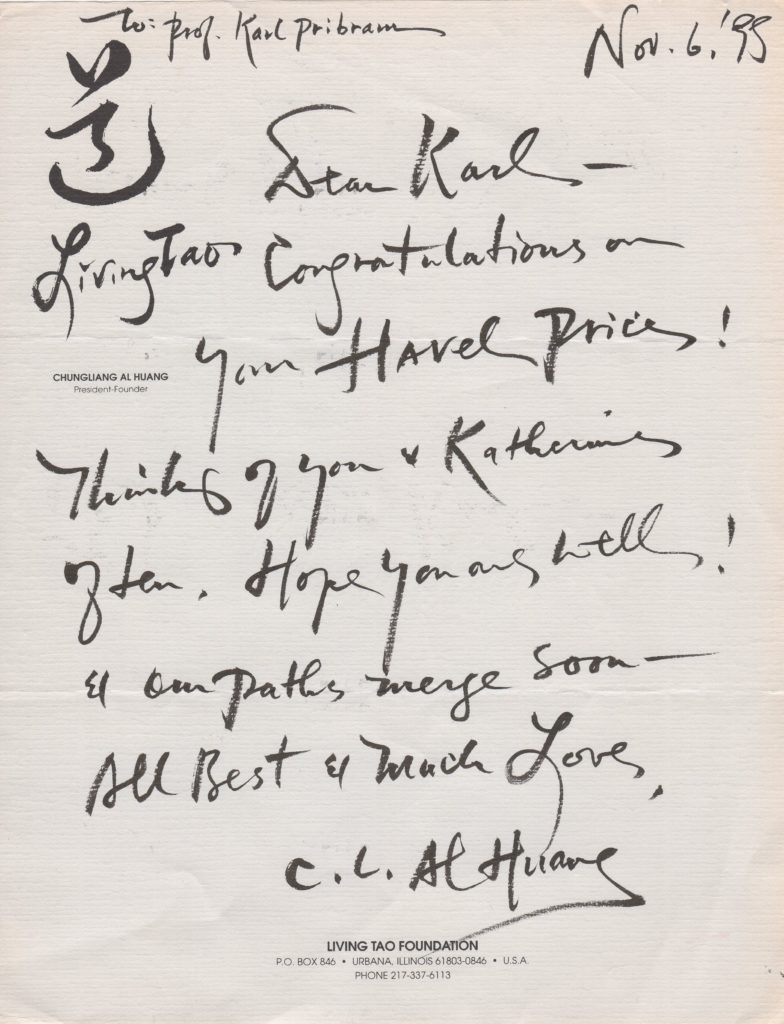 To: Prof. Karl Pribram
Nov. 6, '99
道
Dear Karl —
Living Tao
Congratulations on
your Havel Prize!
CHUNGLIANG AL HUANG
President-Founder
Thinks of you & Katherine
often. Hope you are well!
& our paths merge soon —
All Best & Much Love,
C. L. Al Huang
LIVING TAO FOUNDATION
P.O. BOX 846 • URBANA, ILLINOIS 61803-0846 • U.S.A.
PHONE 217-337-6113